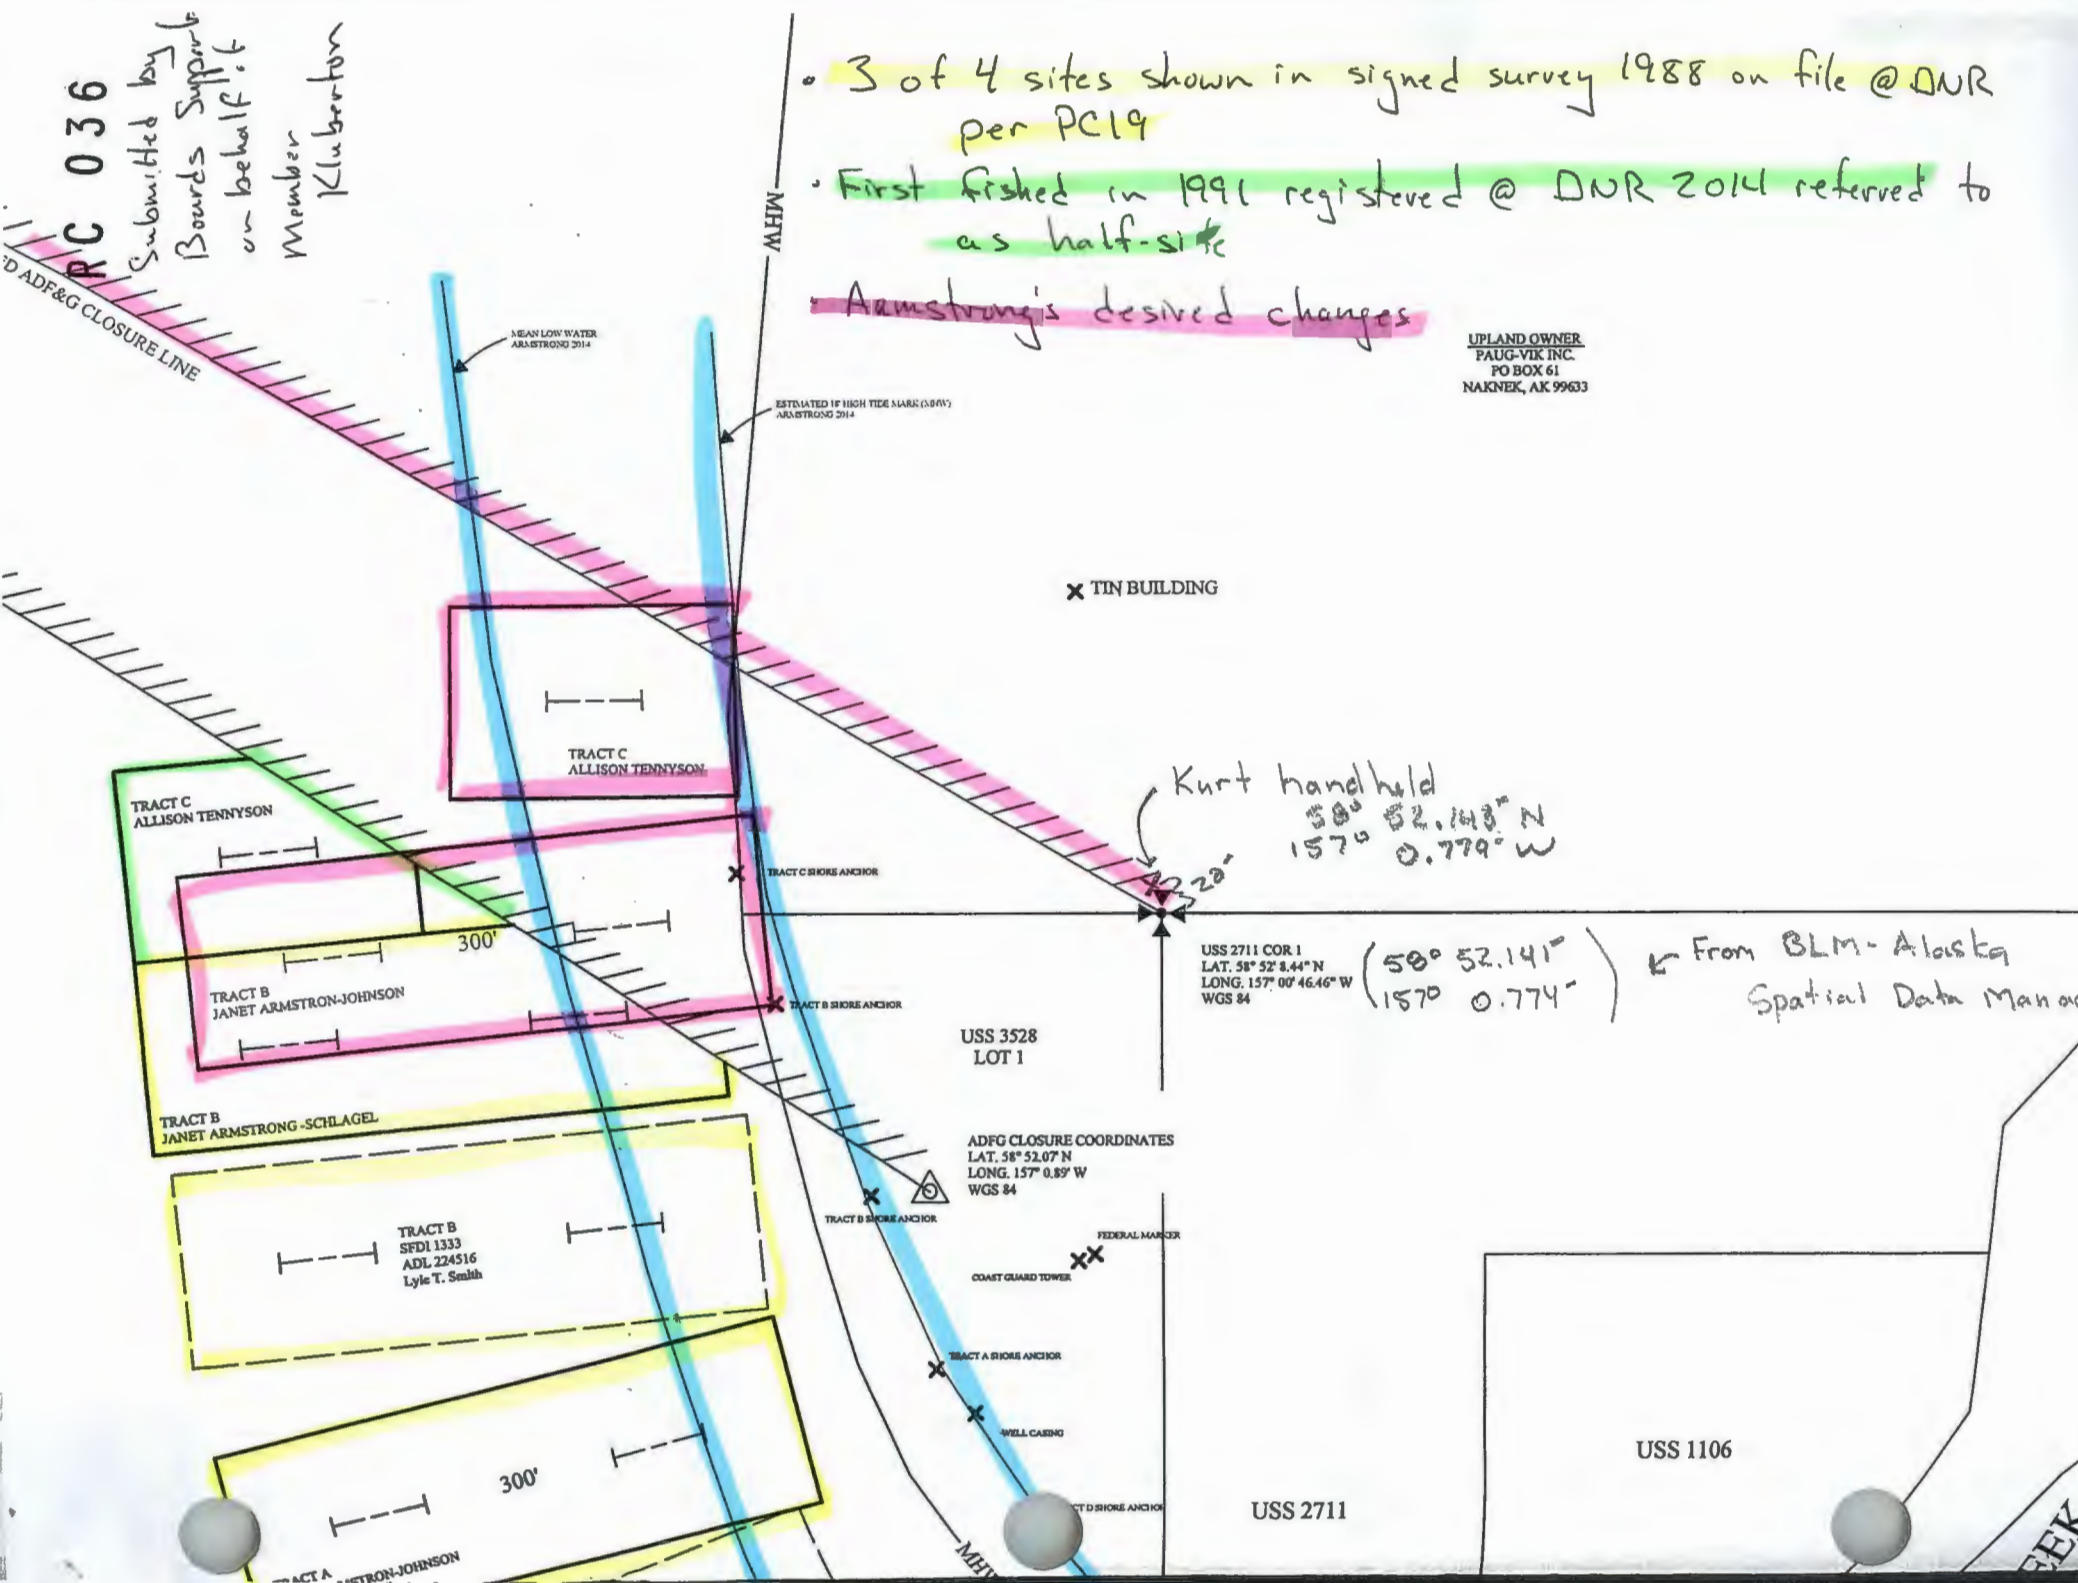 RC 036
Submitted by
Boards Support
on behalf of
Member
Kluberton
• 3 of 4 sites shown in signed survey 1988 on file @ DNR
per PC19
• First fished in 1991 registered @ DNR 2014 referred to
as half-site
• Armstrong's desired changes
UPLAND OWNER
PAUG-VIK INC.
PO BOX 61
NAKNEK, AK 99633
MHW
ADF&G CLOSURE LINE
MEAN LOW WATER
ARMSTRONG 2014
ESTIMATED 18' HIGH TIDE MARK (MHW)
ARMSTRONG 2014
TIN BUILDING
TRACT C
ALLISON TENNYSON
TRACT C
ALLISON TENNYSON
Kurt handheld
58° 52.143" N
157° 0.779" W
TRACT C SHORE ANCHOR
300'
TRACT B
JANET ARMSTRON-JOHNSON
TRACT B SHORE ANCHOR
USS 2711 COR 1
LAT. 58° 52' 8.44" N
LONG. 157° 00' 46.46" W
WGS 84
(58° 52.141"
157° 0.774")
From BLM-Alaska
Spatial Data Mana
USS 3528
LOT 1
TRACT B
JANET ARMSTRONG-SCHLAGEL
ADFG CLOSURE COORDINATES
LAT. 58° 52.07' N
LONG. 157° 0.89' W
WGS 84
TRACT B SHORE ANCHOR
TRACT B
SFDI 1333
ADL 224516
Lyle T. Smith
FEDERAL MARKER
COAST GUARD TOWER
TRACT A SHORE ANCHOR
WELL CASING
300'
CT D SHORE ANCHOR
USS 2711
USS 1106
MHW
ACT A
STRON-JOHNSON
EEK